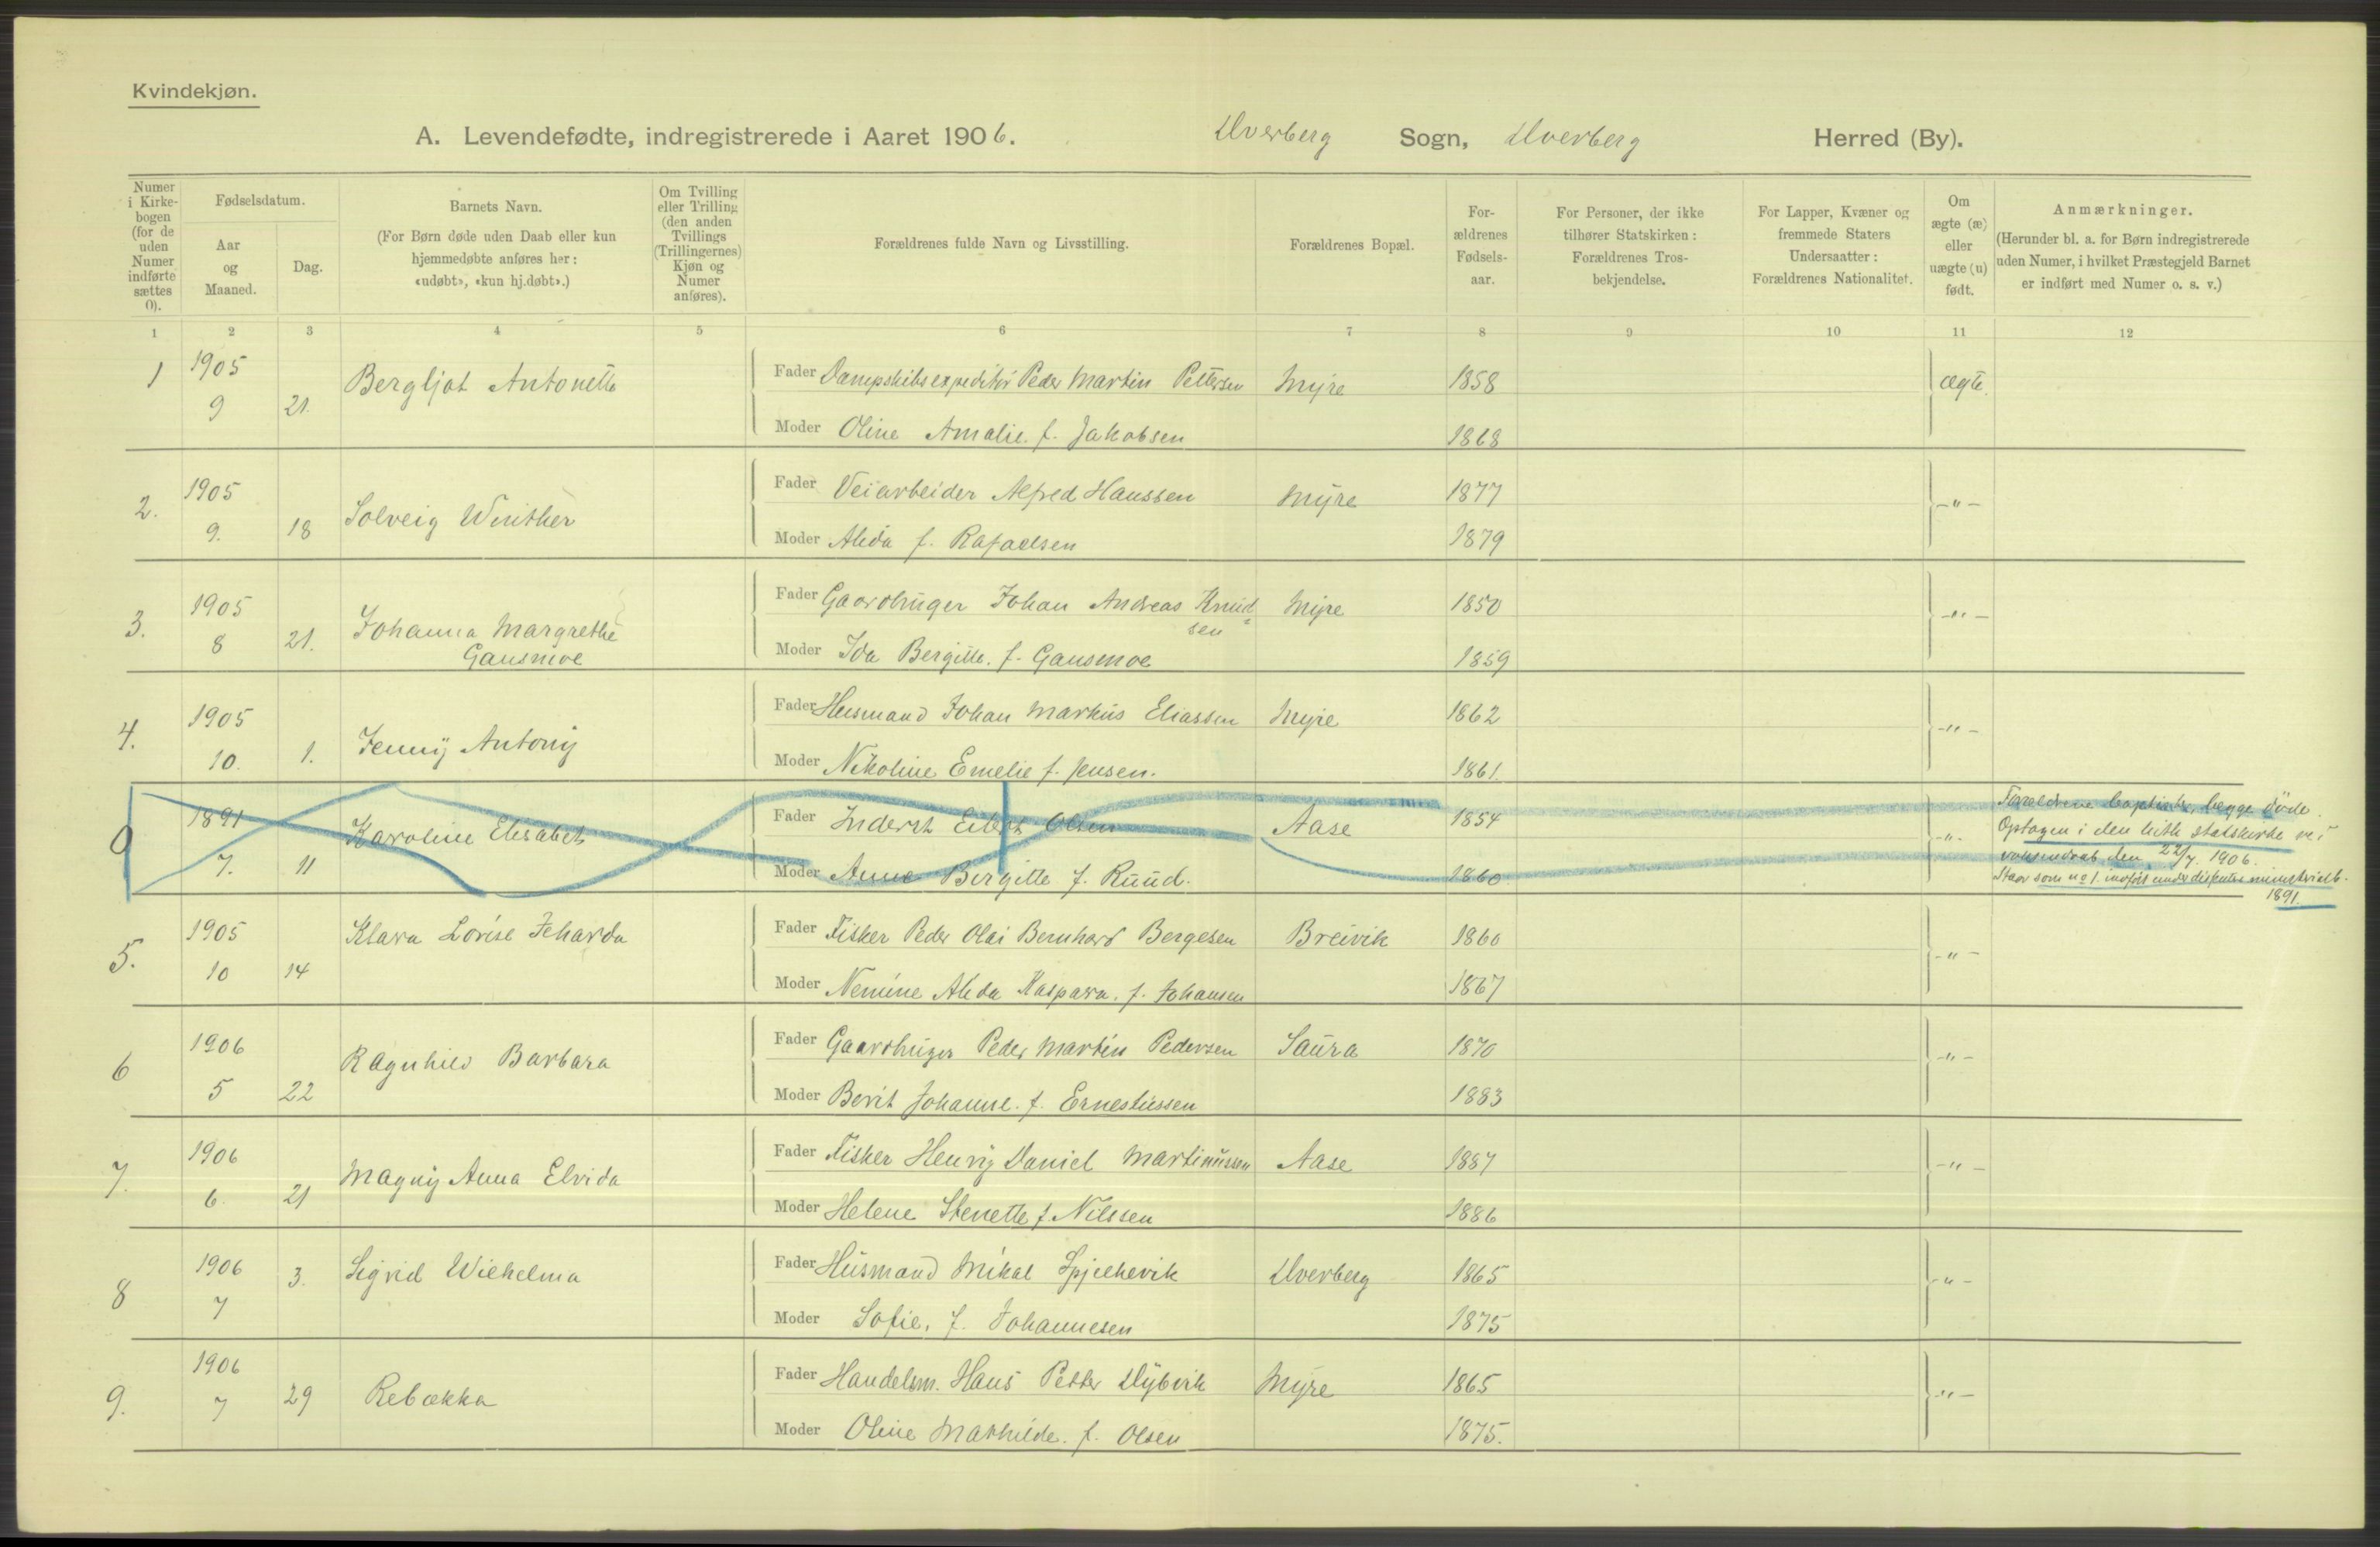 Kvindekjøn.
A. Levendefødte, indregistrerede i Aaret 1906. Dverberg Sogn, Dverberg Herred (By).
Numer i Kirkebogen (for de uden Numer indførte sættes 0).
Fødselsdatum.
Aar og Maaned.
Dag.
Barnets Navn.
(For Børn døde uden Daab eller kun hjemmedøbte anføres her: «udøbt», «kun hj.døbt».)
Om Tvilling eller Trilling (den anden Tvillings (Trillingernes) Kjøn og Numer anføres).
Forældrenes fulde Navn og Livsstilling.
Forældrenes Bopæl.
Forældrenes Fødselsaar.
For Personer, der ikke tilhører Statskirken: Forældrenes Trosbekjendelse.
For Lapper, Kvæner og fremmede Staters Undersaatter: Forældrenes Nationalitet.
Om ægte (æ) eller uægte (u) født.
Anmærkninger.
(Herunder bl. a. for Børn indregistrerede uden Numer, i hvilket Præstegjeld Barnet er indført med Numer o. s. v.)
1 2 3 4 5 6 7 8 9 10 11 12
1 1905 9 21. Bergljot Antonette
Fader Dampskibsexpeditør Peder Martin Pettersen Myre 1858 ægte.
Moder Oline Amalie f. Jakobsen 1868
2. 1905 9. 18 Solveig Winther
Fader Veiarbeider Alfred Hanssen Myre 1877 -"-
Moder Alida f. Rafaelsen 1879
3. 1905 8 21. Johanna Margrethe Gausmoe
Fader Gaardbruger Johan Andreas Knudsen Myre 1850 -"-
Moder Ida Bergitte. f. Gausmoe 1859
4. 1905 10. 1. Jenny Antony
Fader Husmand Johan Markus Eliassen Myre 1862 -"-
Moder Nikoline Emelie f. Jensen. 1861.
0 1891 7. 11 Karoline Elisabet
Fader Inderst Olsen Aase 1854 -"-
Moder Anna Birgitte f. Ruud. 1860
Forældrene baptister, begge døde.
Optagen i den luth statskirke
den 22/7. 1906.
Staar som no 1 indført under
1891.
5. 1905 10 14 Klara Lovise Jeharda
Fader Fisker Peder Olai Bernhard Bergesen Breivik 1860 -"-
Moder Nemine Alida Kaspara. f. Johansen 1867
6 1906 5 22 Ragnhild Barbara
Fader Gaardbruger Peder Martin Pedersen Saura 1870 -"-
Moder Berit Johanne. f. Ernestussen 1883
7. 1906 6. 21 Magny Anna Elvida
Fader Fisker Henrig Daniel Martinussen Aase 1887 -"-
Moder Helene Stenette f. Nilssen 1886
8 1906 7 3. Sigrid Wilhelma
Fader Husmand Mikal Spjelkevik Dverberg 1865 -"-
Moder Sofie, f. Johannesen 1875
9. 1906 7 29 Rebækka
Fader Handelsm. Hans Petter Dybvik Myre 1865 -"-
Moder Oline Mathilde. f. Olsen 1875.